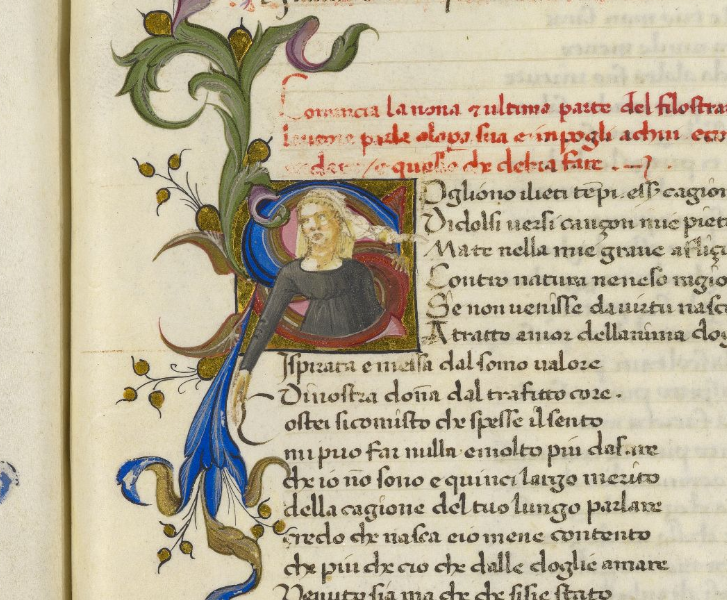 Comincia la nona & ultima parte del filostra
laquale parla alopa sua e inpogli achui e co
dare / e quello che debia fare . —
Ogliono ilieti tēpi. esser cagion
Di dolsi uersi canzon mie piet
Ma te nella mie graue afliçi
Contro natura
Se non uenisse da uirtu nasc
Atratto amor dellanima dog
Ispirata e messa dal somo ualore
Di nostra doña dal trafitto core .
ostei si comusto che spesse il sento
mi puo far nulla e molto piu dafare
che io nō sono e quinci largo merito
della cagione del tuo lungo parlare
credo che nasca e io mene contento
che piu che cio che dalle doglie amare
Venuto sia ma che che si sie stato